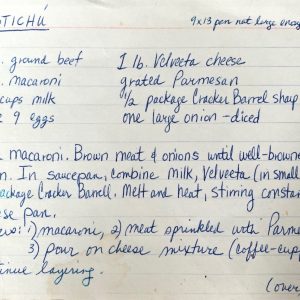 OTICHÚ
9x13 pan not large enoug
. ground beef 1 lb. Velveeta cheese
. macaroni grated Parmesan
cups milk ½ package Cracker Barrel sharp
2 9 eggs one large onion - diced
macaroni. Brown meat & onions until well-browne
n. In saucepan, combine milk, Velveeta (in small
ackage Cracker Barrell. Melt and heat, stirring constan
ese pan.
ers: 1) macaroni, 2) meat sprinkled with Parme
3) pour on cheese mixture (coffee-cupf
tinue layering.
(over